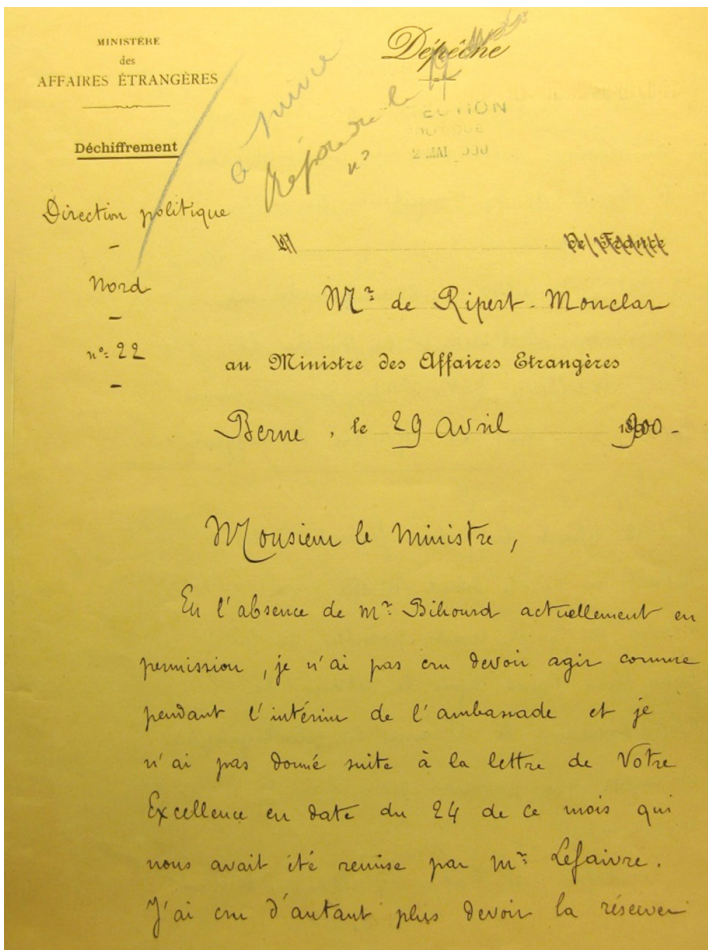 MINISTÈRE
des
AFFAIRES ÉTRANGÈRES
Dépêche
Déchiffrement
à suivre
Répondre le
DIRECTION
POLITIQUE
2 MAI 1900
Direction politique
-
Nord
-
nº: 22
-
Mr. de Ripert-Monclar
au Ministre des Affaires Etrangères
Berne, le 29 avril 1900-
Monsieur le Ministre,
En l'absence de Mr. Bihourd actuellement en
permission, je n'ai pas cru devoir agir comme
pendant l'intérim de l'ambassade et je
n'ai pas donné suite à la lettre de Votre
Excellence en date du 24 de ce mois qui
nous avait été remise par Mr. Lefaivre.
J'ai cru d'autant plus devoir la réserver